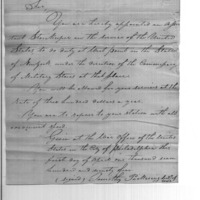 Sir,
You are hereby appointed an Assistant
Storekeeper in the service of the United
States to do duty at West point in the State
of New York under the direction of the Commissary
of Military Stores at that place.
You will be allowed for your services at the
Rate of three hundred dollars a year.
You are to repair to your station with all
convenient speed.
Given at the War Office of the United
States in the City of Philadelphia this
first day of April one thousand seven
hundred and ninety five
(signed) Timothy Pickering